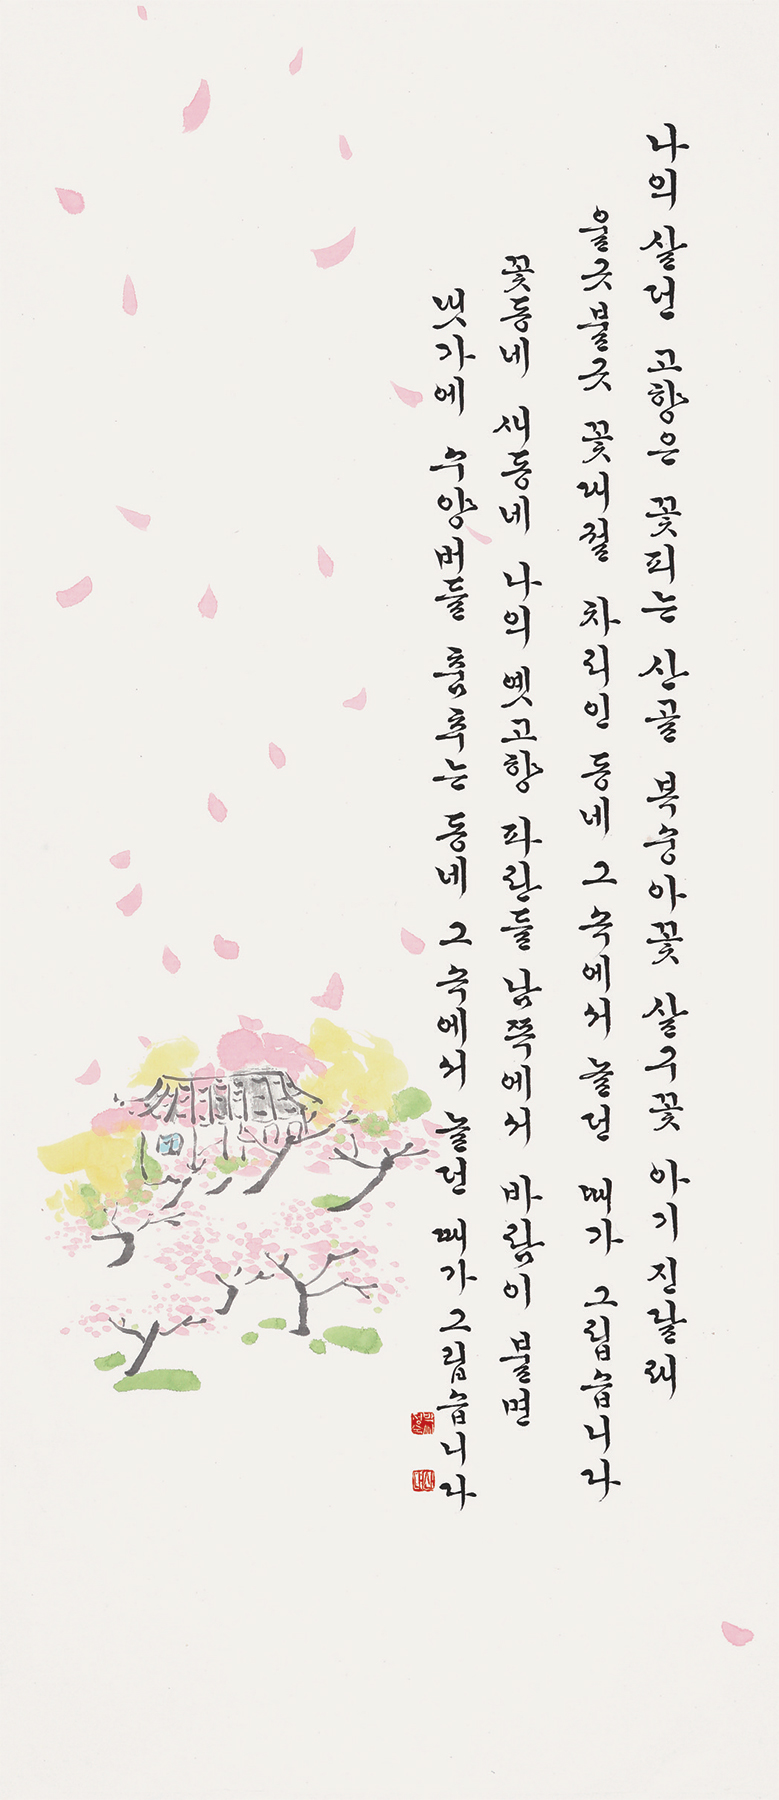 나의 살던 고향은 꽃피는 산골 복숭아꽃 살구꽃 아기 진달래
울긋불긋 꽃대궐 차리인 동네 그 속에서 놀던 때가 그립습니다
꽃동네 새동네 나의 옛고향 파란들 남쪽에서 바람이 불면
냇가에 수양버들 춤추는 동네 그 속에서 놀던 때가 그립습니다